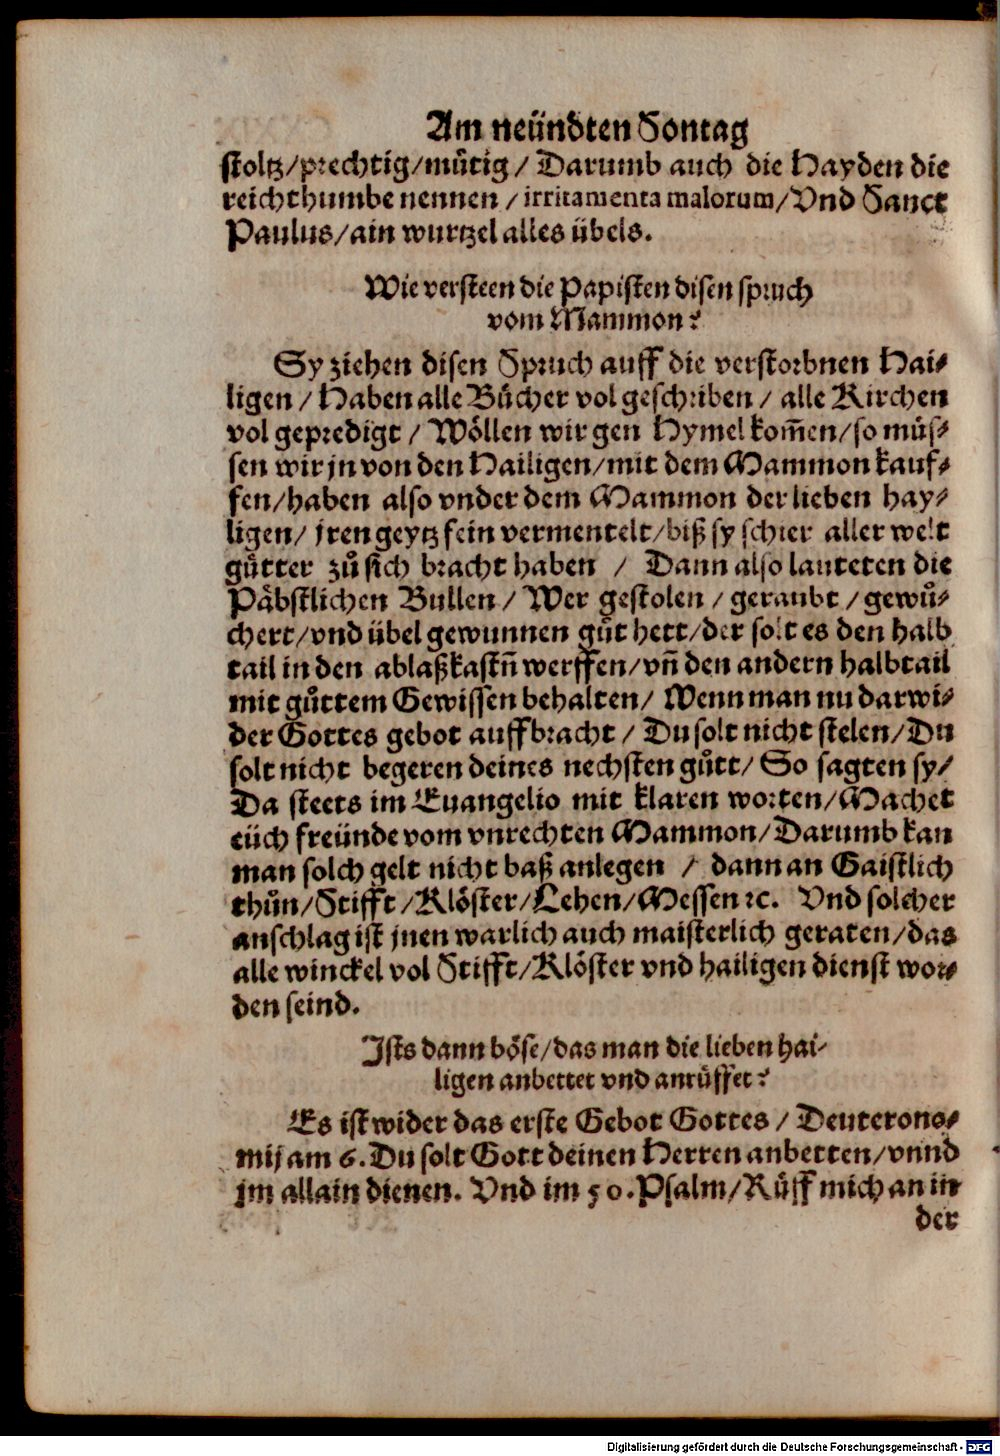 Am neündten Sontag
stoltz/prechtig/můtig/ Darumb auch die Hayden die
reichthumbe nennen / irritamenta malorum/Vnd Sanct
Paulus/ain wurtzel alles übels.
Wie versteen die Papisten disen spruch
vom Mammon?
Sy ziehen disen Spruch auff die verstorbnen Hai-
ligen / Haben alle Bücher vol geschriben / alle Kirchen
vol gepredigt / Wöllen wir gen Hymel kom̃en/so müs-
sen wir jn von den Hailigen/mit dem Mammon kauf-
fen/haben also vnder dem Mammon der lieben hay-
ligen/ jren geytz fein vermentelt/biß sy schier aller welt
gůtter zů sich bracht haben / Dann also lauteten die
Päbstlichen Bullen / Wer gestolen / geraubt / gewů-
chert/vnd übel gewunnen gůt hett/der solt es den halb
tail in den ablaßkastn̄ werffen/vn̄ den andern halbtail
mit gůttem Gewissen behalten/ Wenn man nu darwi-
der Gottes gebot auffbracht / Du solt nicht stelen/Du
solt nicht begeren deines nechsten gůtt/ So sagten sy/
Da steets im Euangelio mit klaren worten/Machet
eüch freünde vom vnrechten Mammon/Darumb kan
man solch gelt nicht baß anlegen / dann an Gaistlich
thůn/Stifft/Klöster/Lehen/Messen ꝛc. Vnd solcher
anschlag ist jnen warlich auch maisterlich geraten/das
alle winckel vol Stifft/Klöster vnd hailigen dienst wor-
den seind.
Ists dann böse/das man die lieben hai-
ligen anbettet vnd anrůffet?
Es ist wider das erste Gebot Gottes / Deuterono-
mij am 6. Du solt Gott deinen Herren anbetten/vnnd
jm allain dienen. Vnd im 50. Psalm/Růff mich an in
der
Digitalisierung gefördert durch die Deutsche Forschungsgemeinschaft - DFG